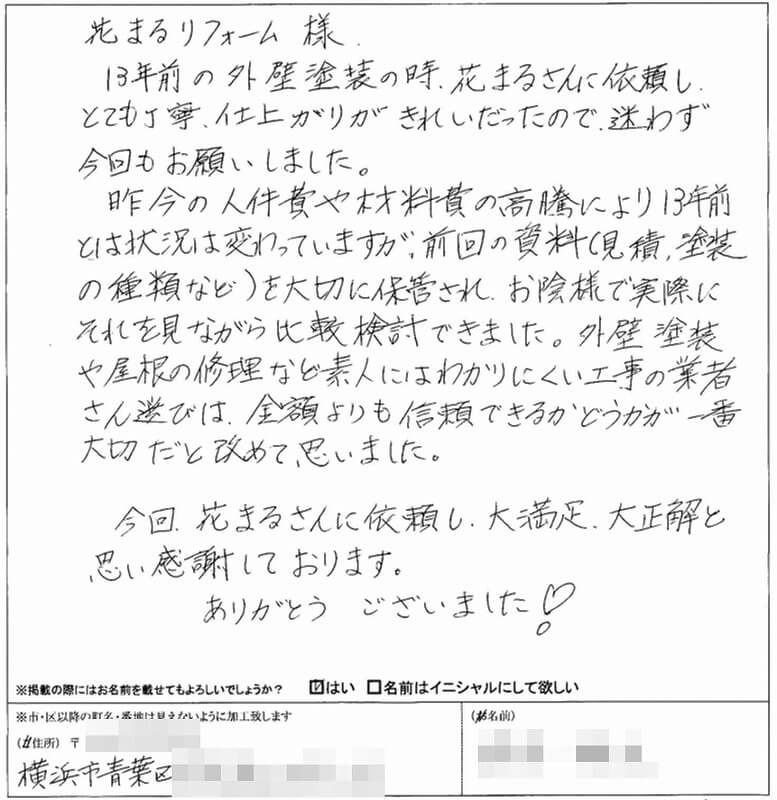 花まるリフォーム 様.
13年前の外壁塗装の時、花まるさんに依頼し、
とても丁寧、仕上がりがきれいだったので、迷わず
今回もお願いしました。
昨今の人件費や材料費の高騰により13年前
とは状況は変わっていますが、前回の資料(見積、塗装
の種類など)を大切に保管され、お陰様で実際に
それを見ながら比較検討できました。外壁塗装
や屋根の修理など素人にはわかりにくい工事の業者
さん選びは、金額よりも信頼できるかどうかが一番
大切だと改めて思いました。
今回、花まるさんに依頼し、大満足、大正解と
思い感謝しております。
ありがとう ございました!
※掲載の際にはお名前を載せてもよろしいでしょうか? ☑はい □名前はイニシャルにして欲しい
※市・区以降の町名・番地は見えないように加工致します
(ご住所) 〒
横浜市青葉区
(お名前)